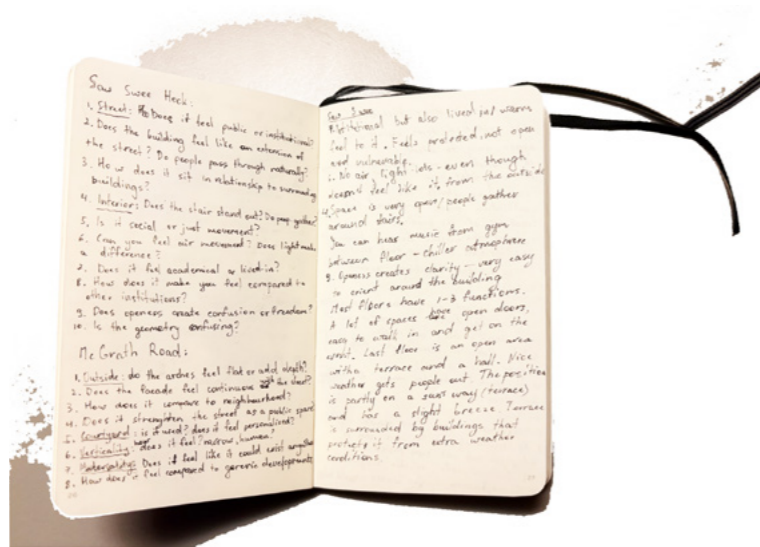 Saw Swee Hock:
1. Street: Does it feel public or institutional?
2. Does the building feel like an extension of
the street? Do people pass through naturally?
3. How does it sit in relationship to surrounding
buildings?
4. Interior: Does the stair stand out? Do people gather?
5. Is it social or just movement?
6. Can you feel air movement? Does light make
a difference?
7. Does it feel academical or lived-in?
8. How does it make you feel compared to
other institutions?
9. Does openess create confusion or freedom?
10. Is the geometry confusing?
Mc Grath Road:
1. Outside: do the arches feel flat or add depth?
2. Does the facade feel continuous the street?
3. How does it compare to neighbourhood?
4. Does it strengthen the street as a public space?
5. Courtyard: is it used? does it feel personalised?
6. Verticality: how does it feel? narrow, human?
7. Materiality: Does it feel like it could exist anywhere
8. How does it feel compared to generic developments
Saw Swee
Institutional but also lived in/ warm
feel to it. Feels protected, not open
and vulnerable.
No air, light - lots - even though
doesn't feel like it from the outside
4. Space is very open/ people gather
around stairs.
You can hear music from gym
between floor - chiller atmosphere
9. Openess creates clarity - very easy
to orient around the building
Most floors have 1-3 functions.
A lot of spaces have open doors,
easy to walk in and get on the
work. Last floor is an open area
with a terrace and a hall. Nice
weather gets people out. The position
is partly on a sunny way (terrace)
and has a slight breeze. Terrace
is surrounded by buildings that
protects it from extra weather
conditions.